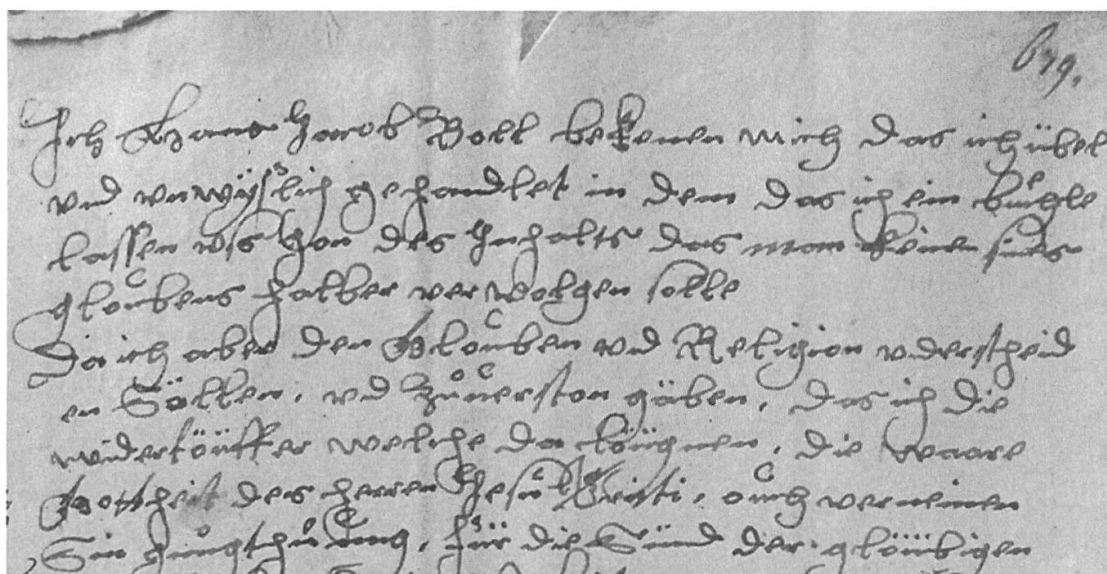 679.
Ich Hans Jacob Boll bekenen mich das ich übel
vnd vnwÿslich gehandlet in dem das ich ein büchle
lassen vsgon des Inhalts das man keinen sines
gloubens halber vervolgen solle
Da ich aber den Glouben vnd Religion vnderscheid
en Söllen, vnd zůuerston gäben, das ich die
widertöüffer welche da löügnen, die waare
Gottheit des herren Jhesu Christi, ouch verneinen
Sin gnůgthůung, für die Sünd der glöübigen